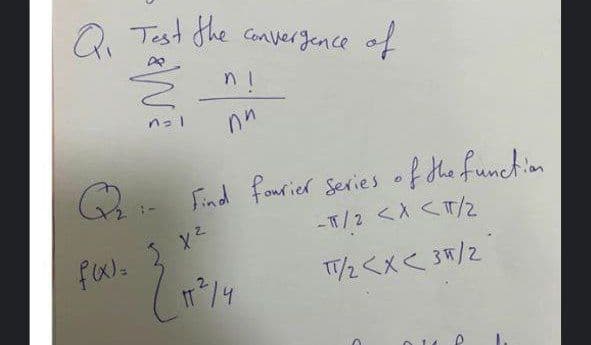 Q1 Test the convergence of
∞
∑ n! / n^n
n=1
Q2 :- Find fourier series of the function
f(x)= { x² -π/2 < x < π/2
π²/4 π/2 < x < 3π/2